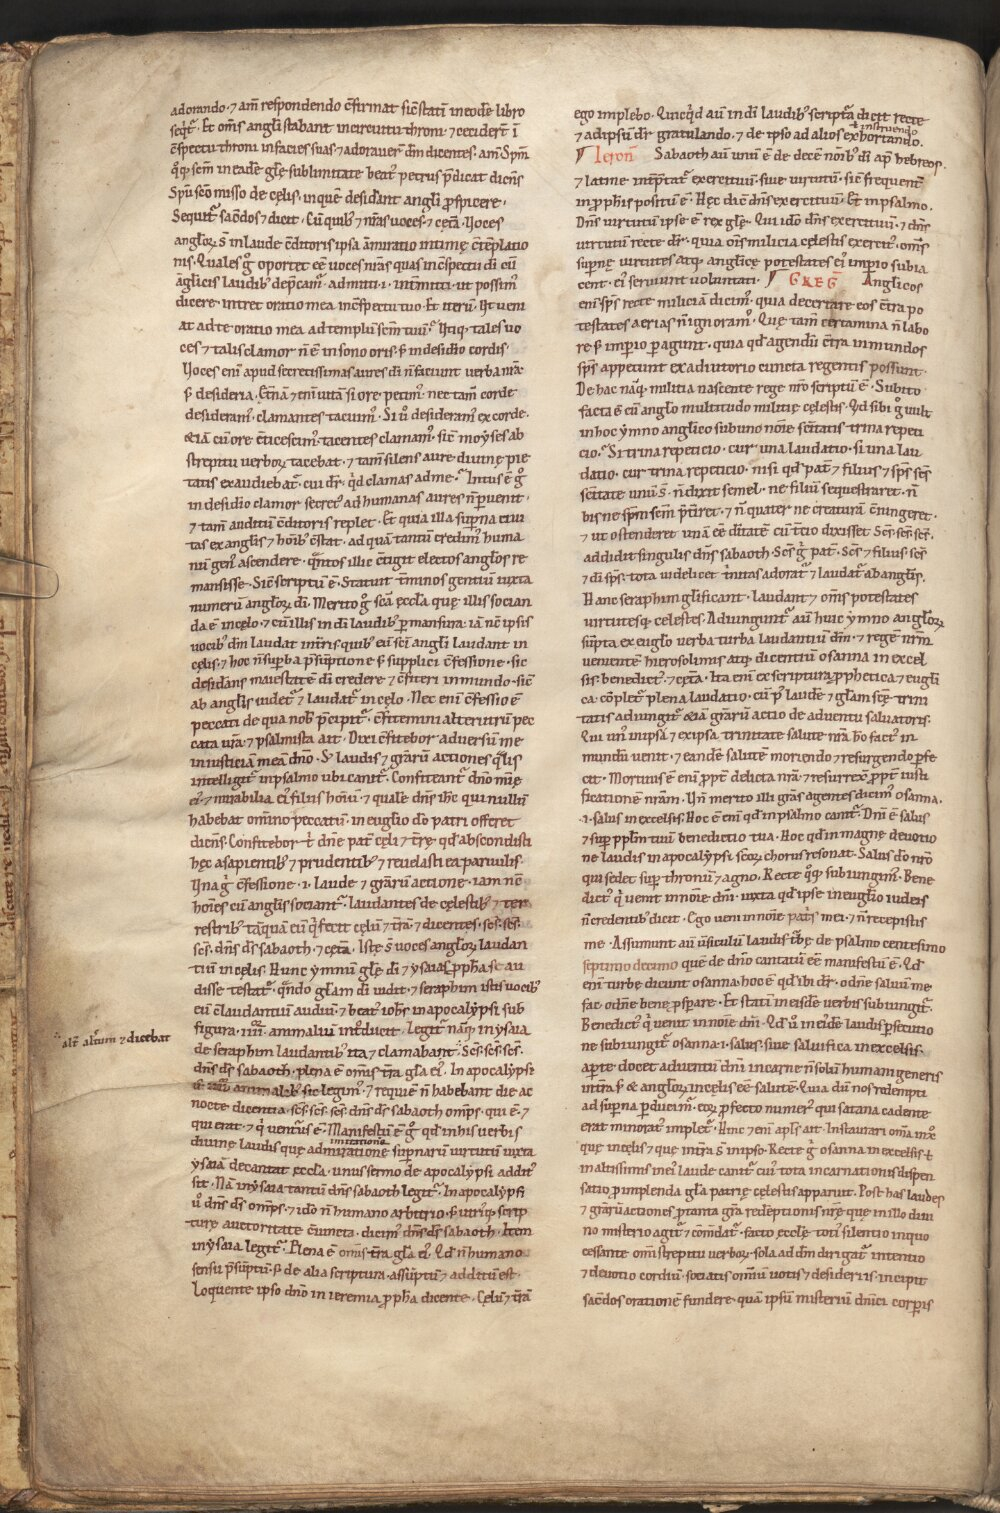 adorando· ⁊ am̅ respondendo c̅firmat sic̅ stati̅ in eode̅ libro
seqt᷑· Et om̅s angli̅ stabant in circuitu throni· ⁊ cecider̅t i̅
c̅spectu throni in facies suas· ⁊ adoraver̅ dm̅ dicentes· am̅ Spm̅
q̊q sc̅m in eade̅ gl̅ę sublimitate beat᷒ petrus p̅dicat dice̅s
Spu̅ sc̅o misso de cęlis· in que̅ desider̅ant angli̅ ꝓspicere·
Sequit᷑ sac̅dos ⁊ dicit· Cu̅ quib᷒ ⁊ nr̅as uoces· ⁊ cęt̅a· Uoces
angl̅oꝝ s̅ in laude c̅ditoris ipsa am̅iratio intimę c̅te̅platio
nis· Quales g̊ oportet ee̅ uoces nr̅as quas in c̅spectu di̅ cu̅
a̅glicis laudib᷒ dep̅cam᷒ admitti· ⁊ int̅mitti· ut possim᷒
dicere· intret oratio mea in c̅spectu tuo· Et iteru̅· Ut veni
at ad te oratio mea ad templu̅ sc̅m tuu̅· Utiq· tales uo
ces ⁊ talis clamor n̅ e̅ in sono oris· s; in desid̅io cordis·
Uoces eni̅ apud secretissimas aures di̅ n̅ faciunt verba nr̅a·
s; desideria· Et̅na̅ ⁊ eni̅ uita̅ si ore petim᷒· nec tam̅ corde
desideram᷒· clamantes tacem᷒· Si u̅ desideram᷒ ex corde·
etia̅ cu̅ ore c̅ticescim᷒· tacentes clamam᷒· sic̅ moyses ab
strepitu verboꝝ tacebat· ⁊ tam̅ silens aure divinę pie
tatis exaudiebat᷑· cui dr̅· qd̅ clamas ad me· Intus e̅ g̊
in desid̅io clamor secret᷒ ad humanas aures n̅ p̅uenit·
⁊ tam̅ auditu̅ c̅ditoris replet· Et quia illa sup̅na ciui
tas ex anglis̅ ⁊ ho̅ib᷒ c̅stat· ad qua̅ tantu̅ credim᷒ huma
nu̅ gen᷒ ascendere· q̅ntos illic c̅tigit electos anglo̅s re
mansisse· Sic̅ scriptu̅ e̅· Statuit t̅minos gentiu̅ iuxta
numeru̅ angl̅oꝝ di̅· Merito g̊ sc̅a ęccl̅a quę illis socian
da e̅ in cęlo· ⁊ cu̅ illis in di̅ laudib᷒ p̅mansura· ia̅ nc̅ ipsis
vocib᷒ dm̅ laudat in t̅ris quib᷒ eu̅ sc̅i angli̅ laudant in
cęlis· ⁊ hoc n̅ sup̅ba p̅su̅ptione s; supplici c̅fessione· sic
desid̅ans maiestate̅ di̅ credere ⁊ c̅fiteri in mundo· sic̅
ab anglis̅ uidet᷑ ⁊ laudat᷑ in cęlo· Nec eni̅ c̅fessio e̅
peccati de qua nob̅ p̅cipit᷑· c̅fitemini alterutru̅ pec
cata ur̅a· ⁊ psalmista ait· Dixi c̅fitebor adversu̅ me
iniusticia̅ mea̅ dn̅o· S; laudis ⁊ gr̅aru̅ actiones q̅lis
intelligit᷑ in psalmo ubi canit᷑· Confiteant᷑ dn̅o mi̅ę
ei᷒ ⁊ mirabilia ei᷒ filiis homi̅u̅· ⁊ quale̅ dn̅s ih̅c qui nullu̅
habebat om̅ino peccatu̅· in eug̅lio d̅o patri offeret
dice̅s· Confitebor t̅ dn̅e pat̅ cęli ⁊ t̅rę qd̅ abscondisti
hęc a sapientib᷒ ⁊ prudentib᷒ ⁊ reuelasti ea paruulis·
Una g̊ c̅fessione· i· laude ⁊ gr̅aru̅ actione· iam nc̅
ho̅ies cu̅ anglis̅ sociant᷑· laudantes de cęlestib᷒ ⁊ ter
restrib᷒ ta̅qua̅ eu̅ q fecit cęlu̅ ⁊ t̅ra̅· ⁊ dicentes· sc̅s· sc̅s·
sc̅s· dn̅s ds̅ sabaoth· ⁊ cęt̅a· Istę s̅ uoces angl̅oꝝ laudan
tiu̅ in cęlis· Hunc ymnu̅ gl̅ę di̅ ⁊ ysaias ꝓph̅a se au
disse testat᷑· q̅ndo gl̅am di̅ uidit· ⁊ seraphin istis uocib᷒
eu̅ c̅laudantiu̅ audiui· ⁊ beat᷒ ioh̅s in apocalypsi sub
figura· iiii· animaliu̅ int̅ducit· legit᷑ na̅q in ysaia
alt̅ alt̅rum ⁊ dicebat
de seraphim laudantib᷒ ita· ⁊ clamabant· Sc̅s· sc̅s· sc̅s·
dn̅s ds̅ sabaoth· plena e̅ om̅is t̅ra gl̅a ei᷒· In apocalypsi
de iiii· animalib᷒ sic legim᷒· ⁊ requie̅ n̅ habebant die ac
nocte dicentia· sc̅s· sc̅s· sc̅s· dn̅s ds̅ sabaoth om̅ps· qui e̅· ⁊
qui erat· ⁊ q ventur᷒ e̅· Manifestu̅ e̅ g̊ qd̅ in his verbis
imitatione
divinę laudis quę admiratione sup̅naru̅ virtutu̅ iuxta
ysaia̅ decantat ęccl̅a· unus sermo de apocalypsi addit᷒
sit· Na̅ in ysaia tantu̅ dn̅s sabaoth legit᷑· In apocalypsi
u̅ dn̅s ds̅ om̅ps· ⁊ ideo n̅ humano arbitrio· s; utriq scrip
turę auctoritate c̅iuncta· dicim᷒ dn̅s ds̅ sabaoth· Item
in ysaia legit᷑· Plena e̅ om̅is t̅ra gl̅a ei᷒· Qd̅ n̅ humano
sensu p̅su̅ptu̅· s; de alia scriptura· assu̅ptu̅ ⁊ additu̅ est·
Loquente ipso dn̅o in ieremia ꝓph̅a dicente· Cęlu̅ ⁊ t̅ra̅
ego implebo· Quicqd̅ au̅ in di̅ laudib᷒ scriptu̅ra dicit recte
instruendo
⁊ ad ipsu̅ dr̅ gratulando· ⁊ de ipso ad alios exhortando·
Iero̅n Sabaoth au̅ unu̅ e̅ de dece̅ no̅ib᷒ di̅ ap̅ hebreos·
⁊ latine int̅p̅tat᷑ exercituu̅· siue virtutu̅· sic̅ frequent̅
in ꝓphis positu̅ e̅· Hęc dic̅ dn̅s exercituu̅· Et in psalmo·
Dn̅s virtutu̅ ipse e̅ rex gl̅ę· Qui ideo dn̅s exercituu̅· ⁊ dn̅s
virtutu̅ recte dr̅· quia om̅is milicia cęlestis exercit᷒· om̅s
sup̅nę virtutes atq anglicę potestates ei᷒ imp̅io subia
cent· ei᷒ seruiunt voluntati· GREG̅ Anglicos
eni̅ sp̅s recte milicia̅ dicim᷒· quia decertare eos c̅tra po
testates aerias n̅ ignoram᷒· Quę tam̅ certamina n̅ labo
re s; imp̅io p̅agunt· quia qd̅ agendu̅ c̅tra inmundos
sp̅s appetunt ex adiutorio cuncta regentis possunt·
De hac na̅q militia nascente rege nr̅o scriptu̅ e̅· Subito
facta e̅ cu̅ anglo̅ multitudo militię cęlestis· Qd̅ sibi g̊ uult
in hoc ymno anglico sub uno no̅ie sc̅itatis trina repeti
cio· Si trina repeticio· cur una laudatio· si una lau
datio· cur trina repeticio· nisi qd̅ pat̅ ⁊ filius ⁊ sp̅s sc̅s
sc̅itate unu̅ s̅· n̅ dixit semel· ne filiu̅ sequestraret· n̅
bis ne sp̅m sc̅m p̅tiret· ⁊ n̅ quater ne creatura̅ c̅iungeret·
⁊ ut ostenderet una̅ ee̅ di̅tate̅ cu̅ t̅cio dixisset Sc̅s· sc̅s· sc̅s·
addidit singulis dn̅s sabaoth· Sc̅s g̊ pat̅· Sc̅s ⁊ filius· sc̅s
⁊ di̅ sp̅s· tota uidelicet t̅nitas adorat᷑ ⁊ laudat᷑ ab anglis̅·
Hanc seraphin gl̅ificant· laudant ⁊ om̅s potestates
virtutesq celestes· Adiungunt᷑ au̅ huic ymno angl̅oꝝ
su̅pta ex eug̅lo verba turba laudantiu̅ dm̅· ⁊ rege̅ nr̅m
veniente̅ hierosolimis atq dicentiu̅ osanna in excel
sis· benedict᷒· ⁊ cęt̅a· Ita eni̅ ex scriptura ꝓphetica ⁊ eug̅li
ca· co̅plet᷑ plena laudatio· cu̅ p᷒ laude̅ ⁊ gl̅am sc̅ę trini
tatis adiungit᷑ etia̅ gr̅aru̅ actio de adventu salvatoris·
Qui un᷒ in ipsa ⁊ ex ipsa trinitate salute nr̅a h̅o fact᷒ in
mundu̅ venit· ⁊ eande̅ salute̅ moriendo ⁊ resurgendo ꝑfe
cit· Mortuus e̅ eni̅ ꝓpt̅ delicta nr̅a· ⁊ resurrex̅ ꝓpt̅ iusti
ficatione̅ nr̅am· Un̅ merito illi gr̅as agentes dicim᷒ osanna·
·i· salus in excelsis· Hoc e̅ eni̅ qd̅ in psalmo canit᷑ Dn̅i e̅ salus
⁊ sup̅ pplm̅ tuu̅ benedictio tua· Hoc qd̅ in magne devotio
ne laudis in apocalypsi sc̅oꝝ chorus resonat· Salus d̅o nr̅o
qui sedet sup̅ thronu̅ ⁊ agno· Recte q̊q subiungim᷒· Bene
dict᷒ q uenit in no̅ie dn̅i· iuxta qd̅ ipse in eug̅lio iudeis
n̅ credentib᷒ dicit· Ego veni in no̅ie patris mei· ⁊ n̅ recepistis
me· Assumunt au̅ u̅siculu̅ laudis t̅bę de psalmo centesimo
septimo decimo que̅ de dn̅o cantatu̅ ee̅ manifestu̅ e̅· Qd̅
eni̅ turbę dicunt osanna· hoc e̅ qd̅ ibi dr̅· o dn̅e saluu̅ me
fac· o dn̅e bene ꝓsp̅are· Et stati̅ in eisde̅ verbis subiungit᷑·
Benedict᷒ q uenit in no̅ie dn̅i· Qd̅ u̅ in ei᷒de̅ laudis ꝑsecutio
ne subiungit᷑ osanna· i· salus· siue saluifica in excelsis·
aperte docet adventu̅ dn̅i in carne n̅ solu̅ humani generis
in t̅ra s; ⁊ angl̅oꝝ in cęlis ee̅ salute̅· Quia du̅ nos redempti
ad sup̅na p̅ducim᷒· eoꝝ ꝓfecto numer᷒ qui satana cadente
erat minorat᷒ implet᷑· Hinc ⁊ eni̅ apl̅s ait· Instaurari om̅ia in xp̅o
quę in cęlis ⁊ quę in t̅ra s̅ in ipso· Recte g̊ osanna in excelsis ⁊
in altissimis in ei᷒ laude canit᷑ cui᷒ tota incarnationis dispen
satio ꝓ implenda gl̅a patrię cęlestis apparuit· Post has laudes
⁊ gr̅aru̅ actiones ꝓ tanta gr̅a rede̅ptionis nr̅ę quę in isto divi
no misterio agit᷑ ⁊ c̅m̅dat᷑· facto ęccl̅ę toti᷒ silentio in quo
cessante om̅i strepitu verboꝝ· sola ad dm̅ dirigat᷑ intentio
⁊ deuotio cordiu̅· sociatis om̅iu̅ uotis ⁊ desideriis· incipit
sac̅dos oratione̅ fundere· qua̅ ipsu̅ misteriu̅ dn̅ici corꝑis